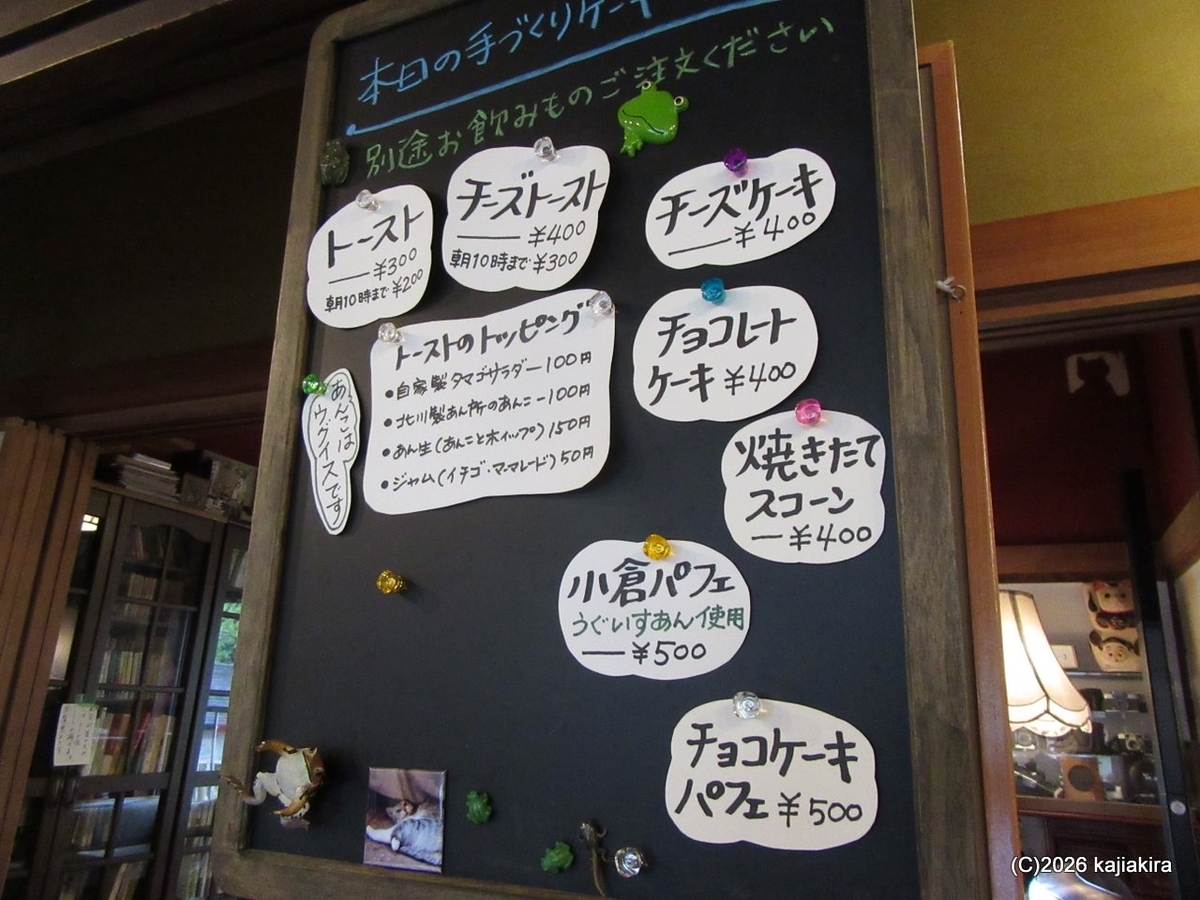 本日の手づくりケーキ
別途お飲みものご注文ください
トースト
¥300
朝10時まで¥200
チーズトースト
¥400
朝10時まで¥300
チーズケーキ
¥400
トーストのトッピング
●自家製タマゴサラダー100円
●北川製あん所のあんこー100円
●あん生(あんことホイップ)150円
●ジャム(イチゴ・マーマレード)50円
あんこは
ウグイスです
チョコレート
ケーキ ¥400
焼きたて
スコーン
¥400
小倉パフェ
うぐいすあん使用
¥500
チョコケーキ
パフェ ¥500
(C)2026 kajiakira